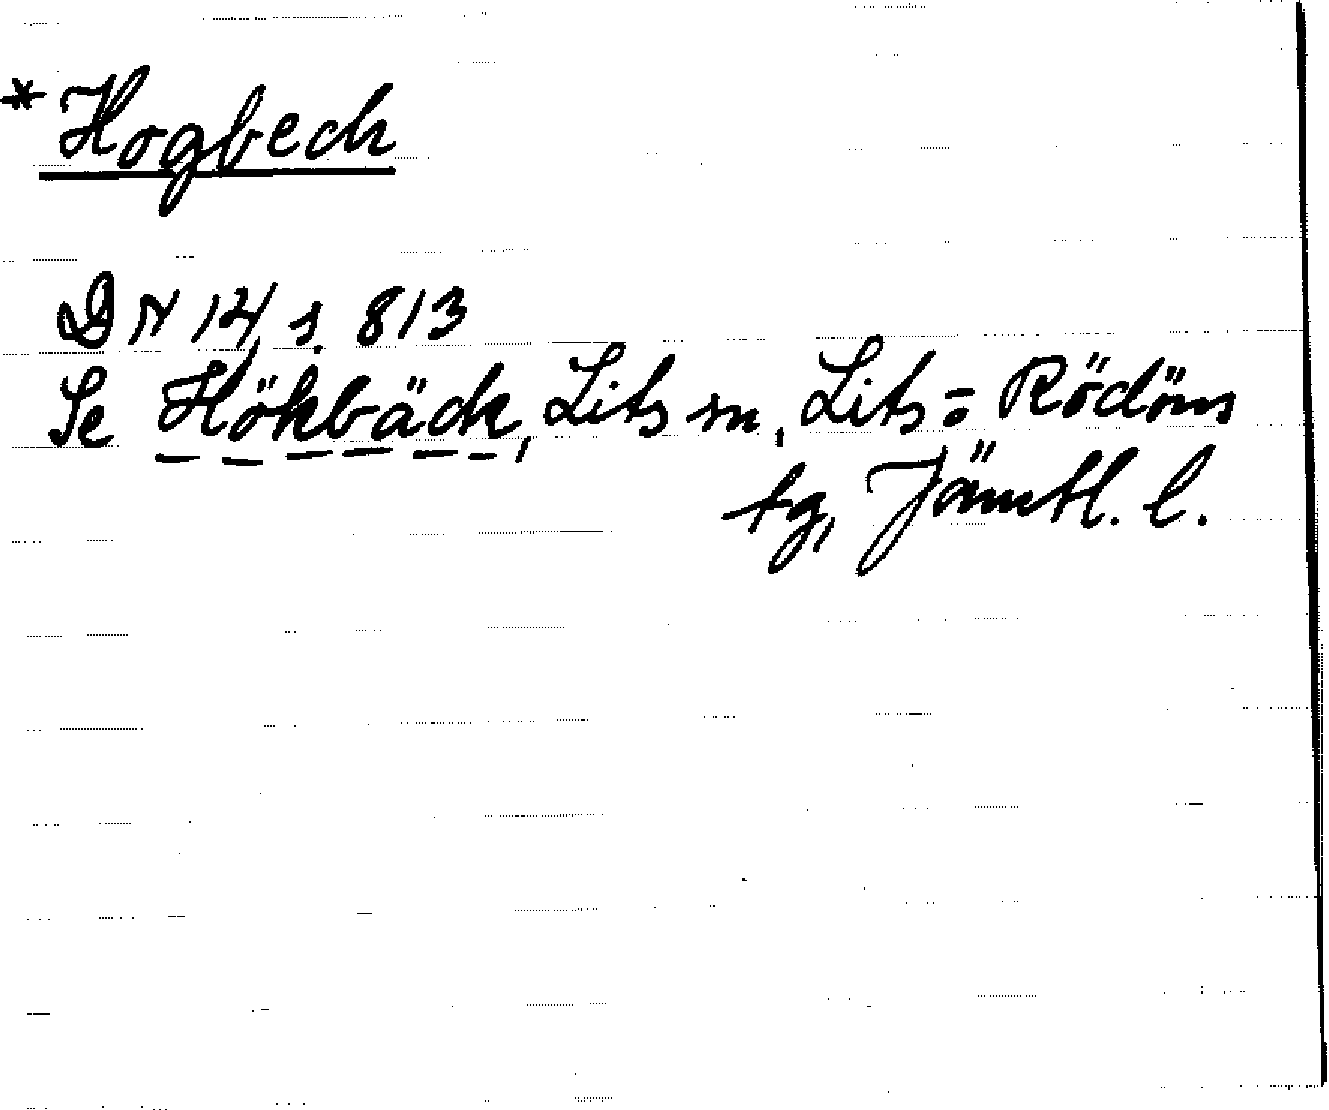 *Hogbeck
DN 14 s. 813
Se Hökbäck, Lits sn, Lits- o Rödöns
tg, Jämtl. l.